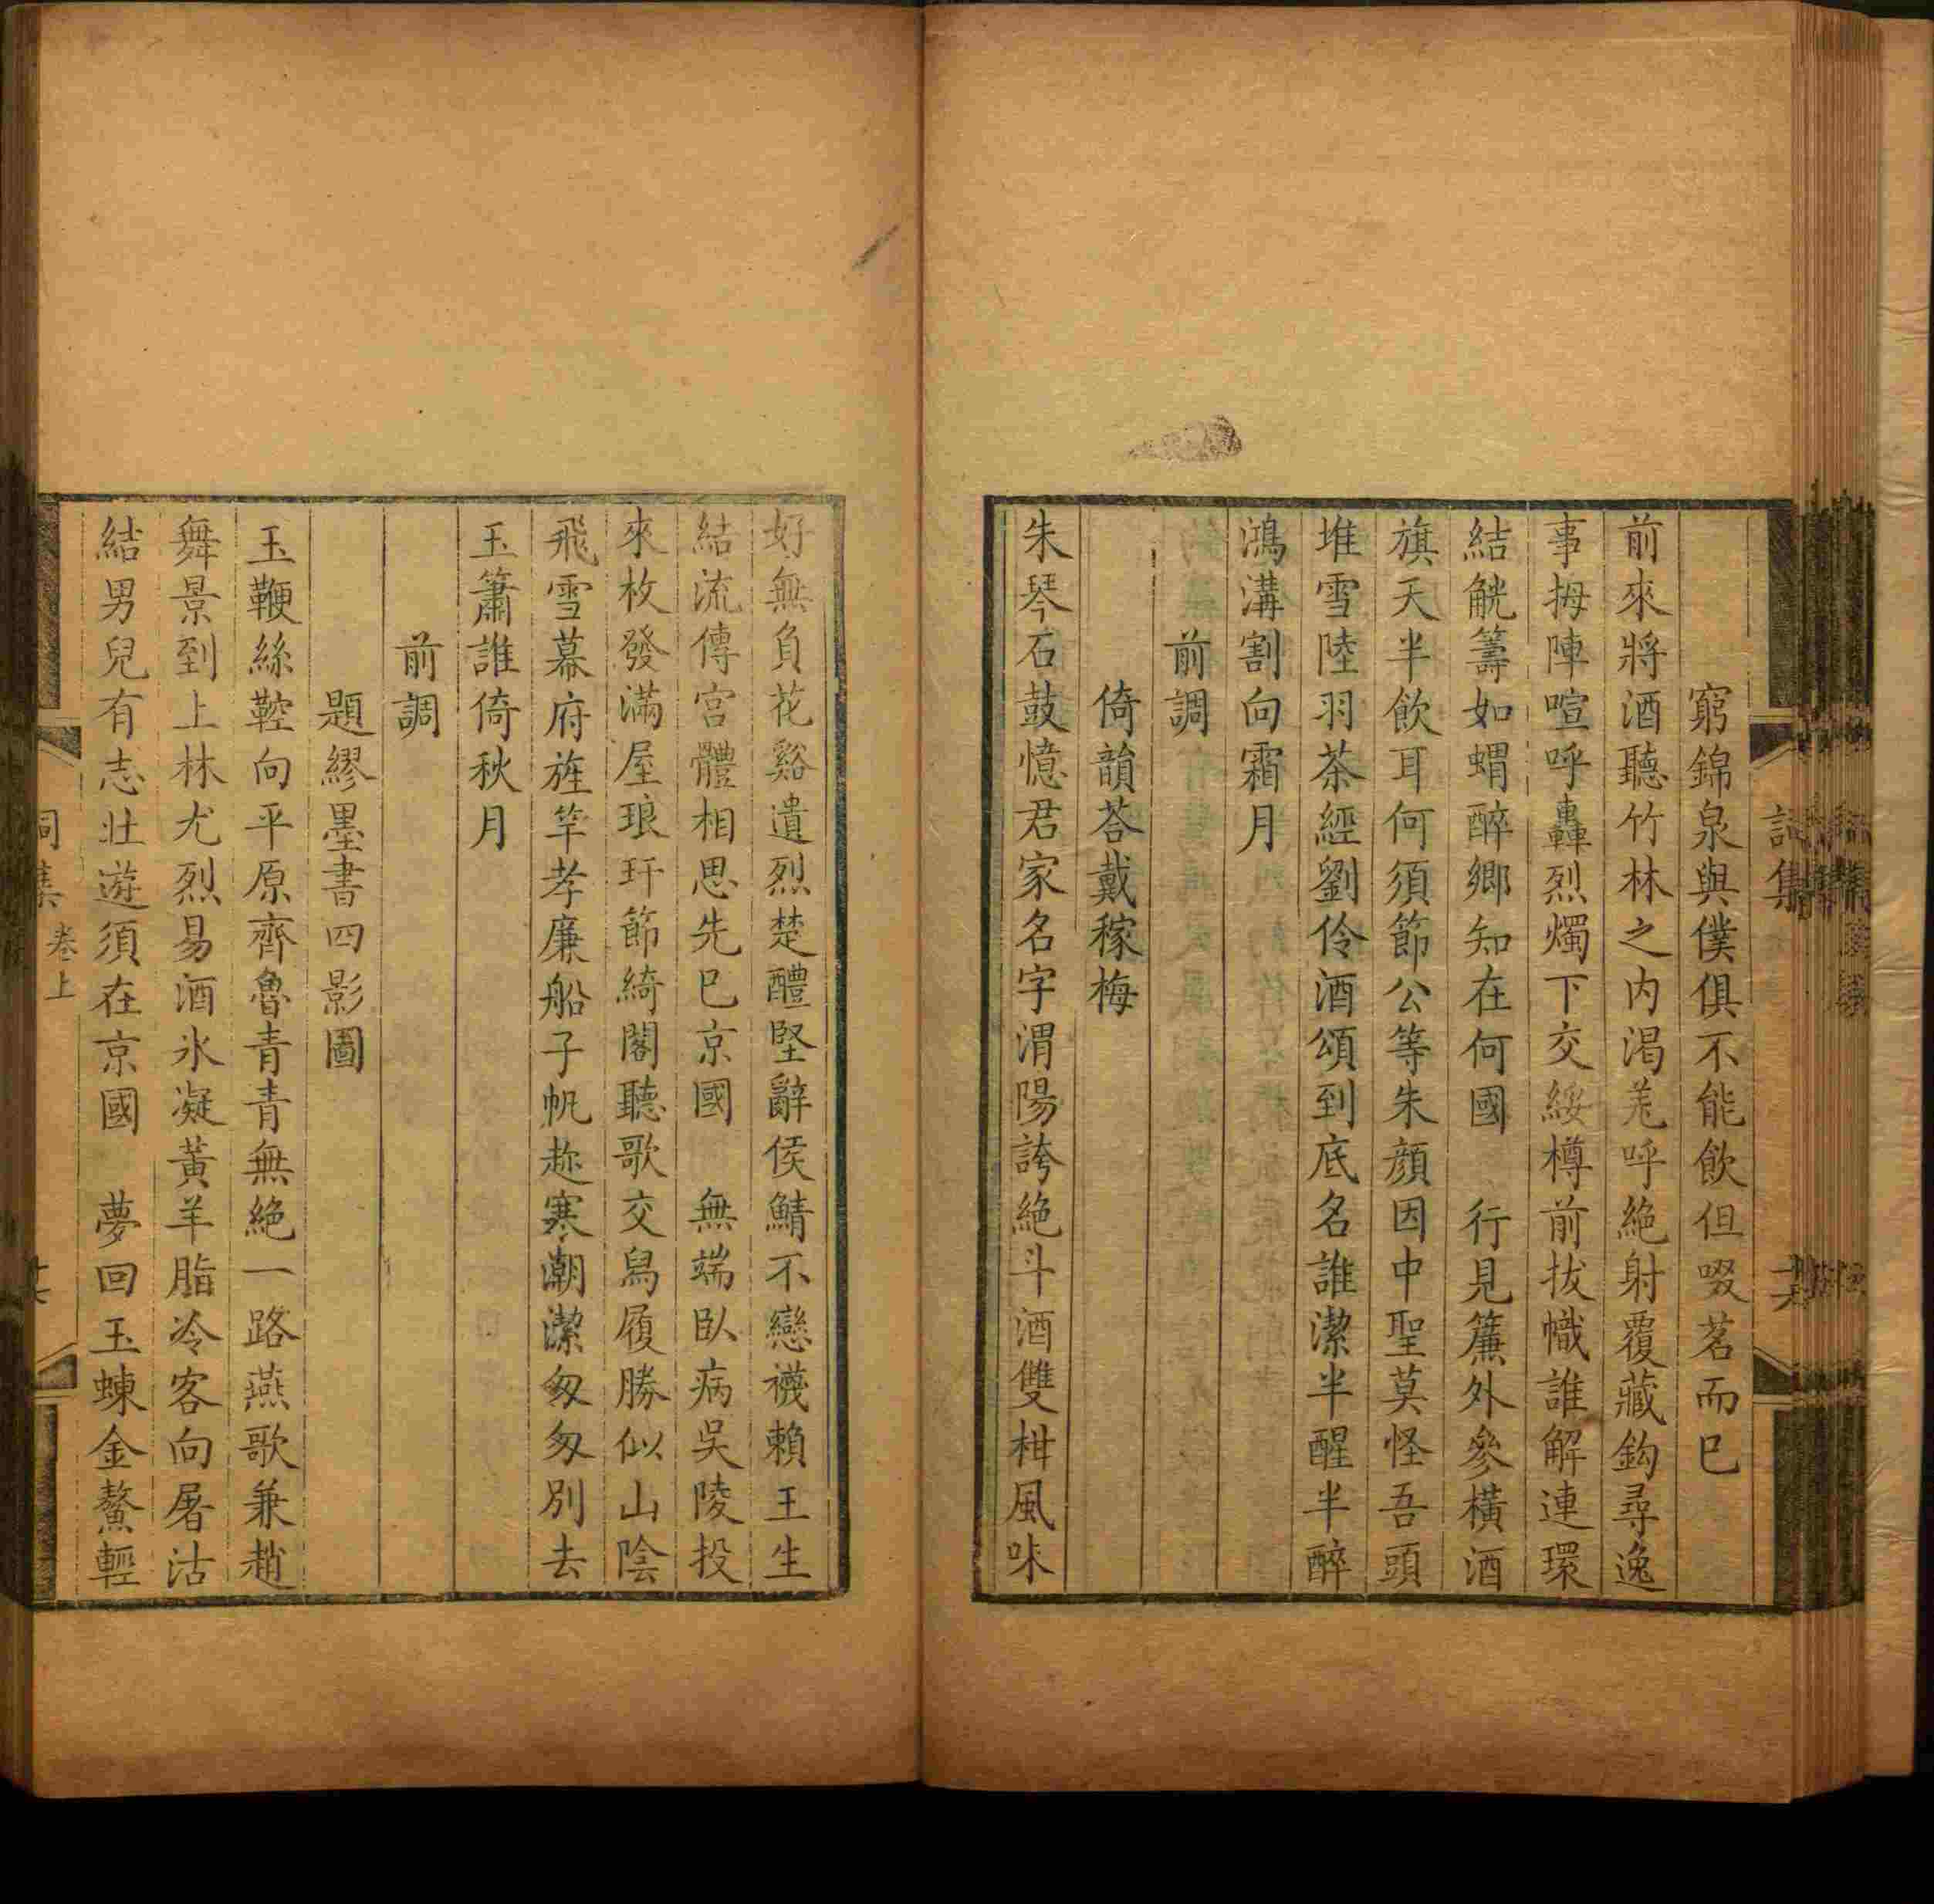 窮錦泉與僕俱不能飲但啜茗而已
前來將酒聽竹林之内渴羌呼絶射覆藏鈎尋逸
事拇陣喧呼轟烈燭下交綏樽前拔幟誰解連環
結觥籌如蝟醉鄉知在何國　行見簾外參橫酒
旗天半飲耳何須節公等朱顔因中聖莫怪吾頭
堆雪陸羽茶經劉伶酒頌到底名誰潔半醒半醉
鴻溝割向霜月
前調
倚韻荅戴稼梅
朱琴石鼓憶君家名字渭陽誇絶斗酒雙柑風味
好無負花谿遺烈楚醴堅辭侯鯖不戀襪賴王生
結流傳宫體相思先已京國　無端臥病吳陵投
來枚發滿屋琅玕節綺閣聽歌交舃履勝似山陰
飛雪幕府旌竿孝廉船子帆趂寒潮潔匆匆別去
玉簫誰倚秋月
前調
題繆墨書四影圖
玉鞭絲鞚向平原齊魯青青無絶一路燕歌兼趙
舞景到上林尤烈易酒氷凝黃羊脂冷客向屠沽
結男兒有志壯遊須在京國　夢回玉蝀金鰲輕
詞集
卷上